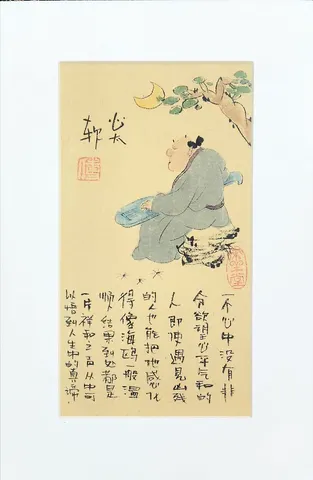 心太
软
一个心中没有非
分欲望心平气和的
人即使遇見凶残
的人也能把他感化
得像海鸥一般温
顺结果到处都是
一片祥和之声从中可
以悟到人生中的真谛